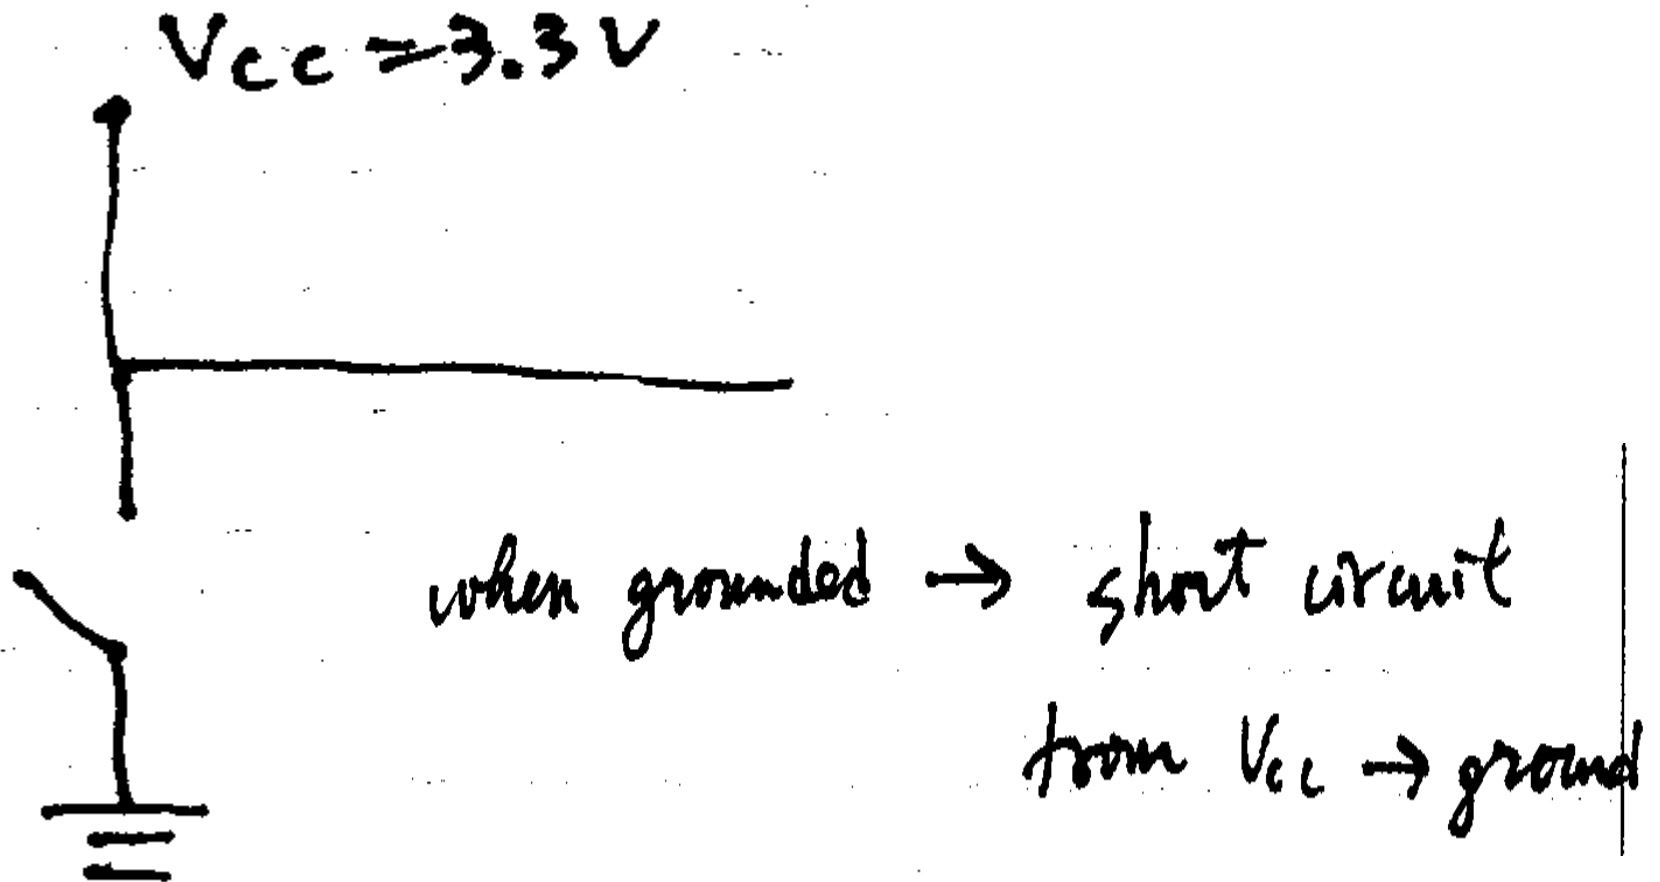 Vcc = 3.3V
when grounded → short circuit
from Vcc → ground